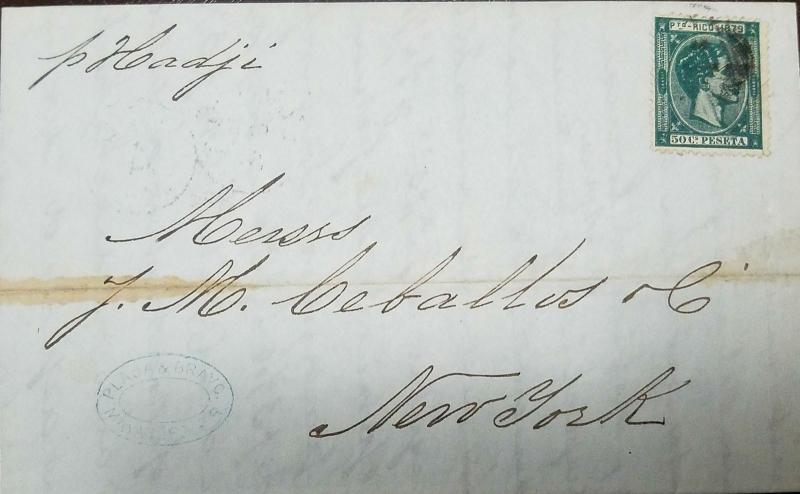 p Hadji
Pto-RICO 1879
50 Cs PESETA
Messrs
J. M. Ceballos & Cº
New York
PLAJA & BRAVO, S